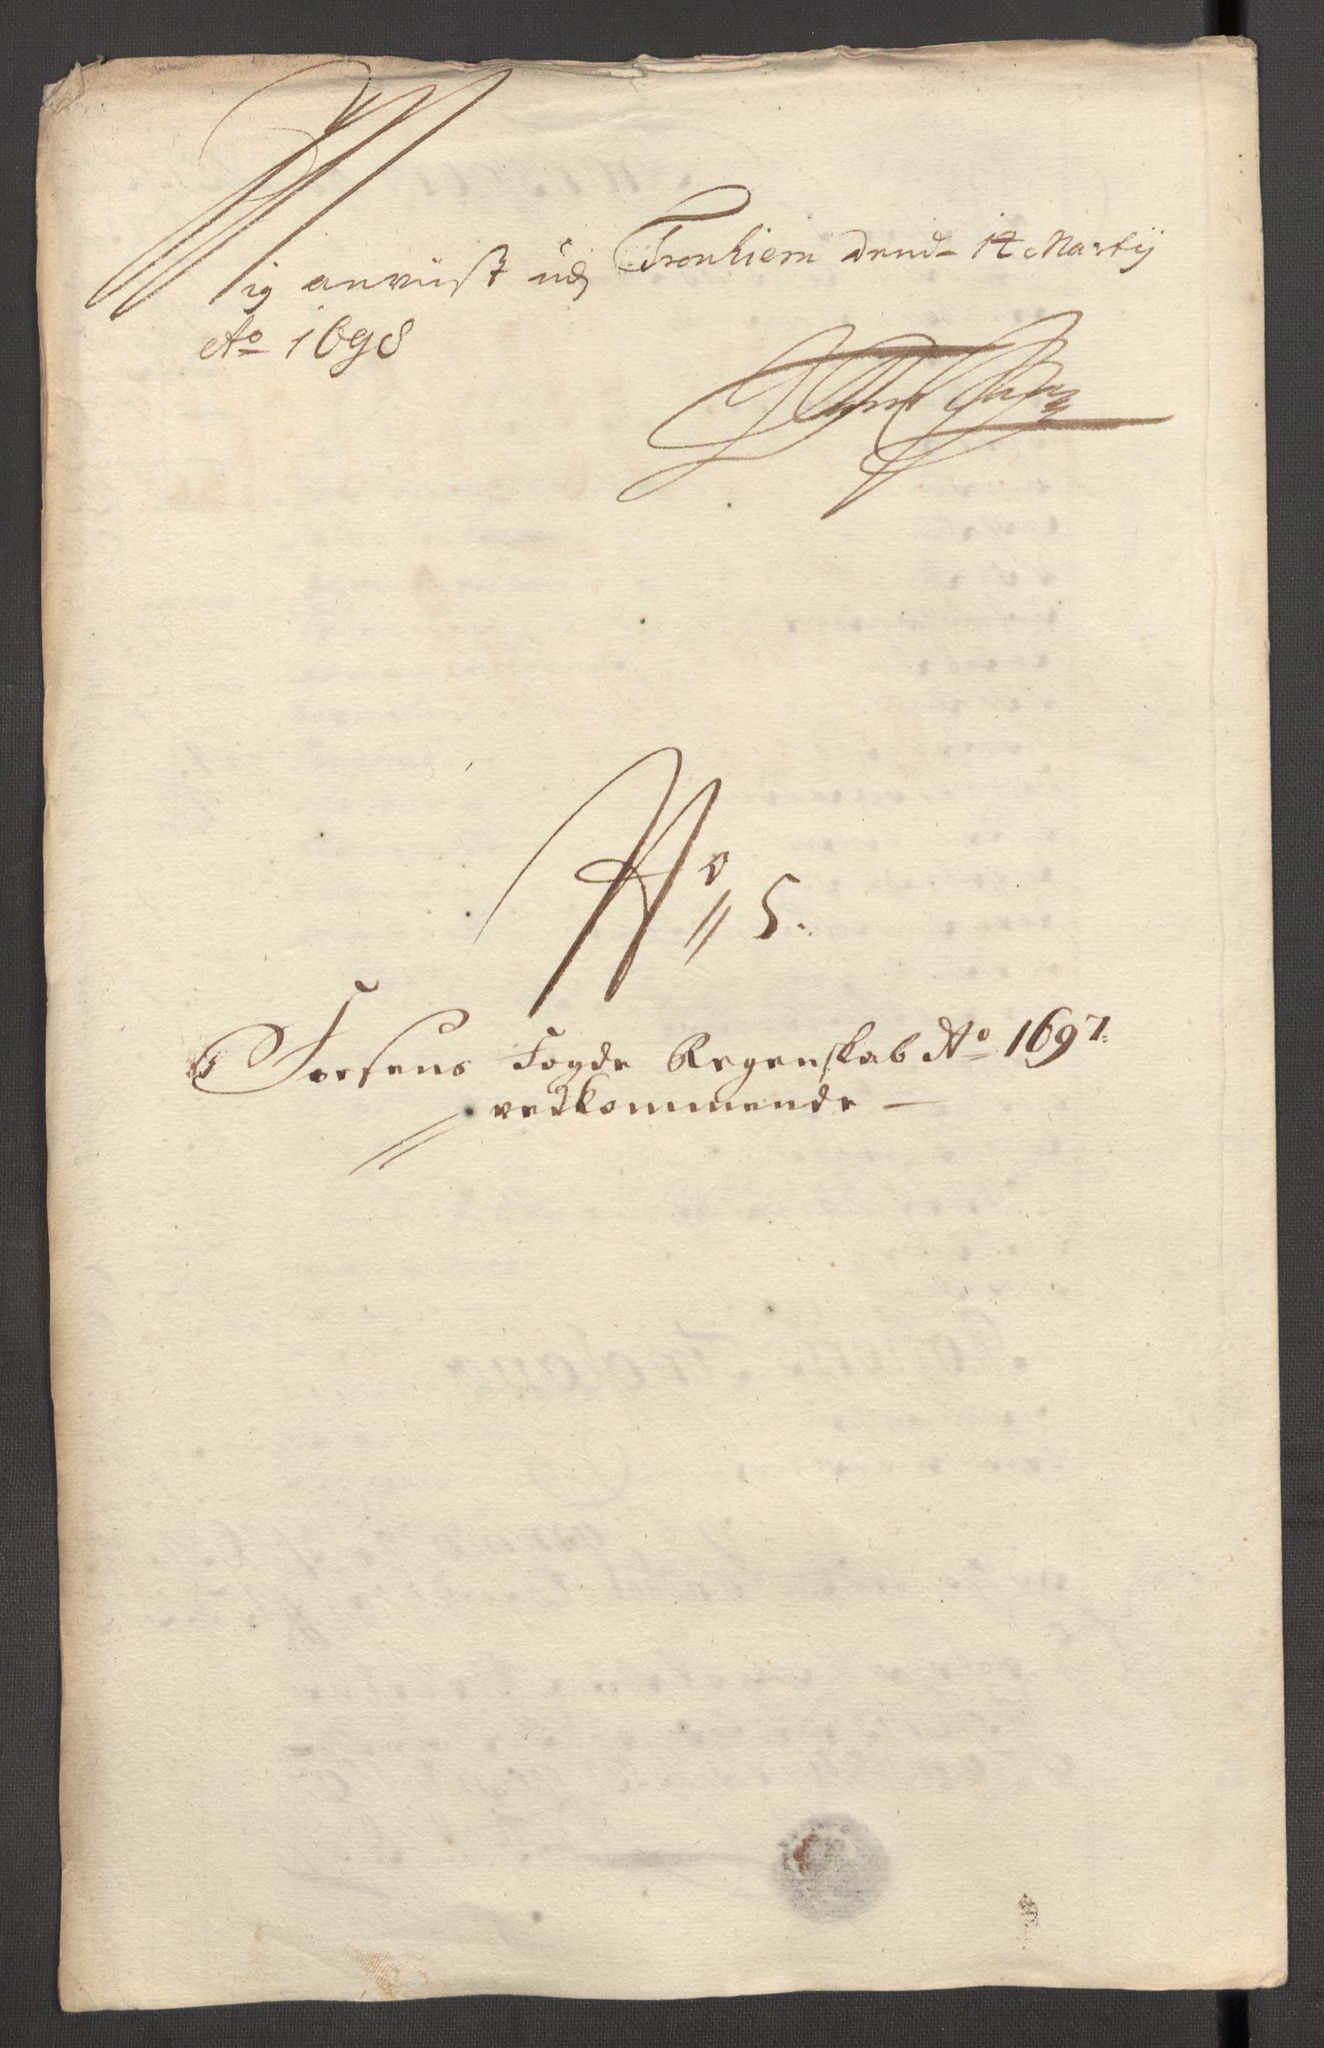 Mig anvüst udj Tronhiem dend 14 Martij
Ao 1698
No 5.
Fosens Fogde Regenskab Ao 1697.
vedkommende